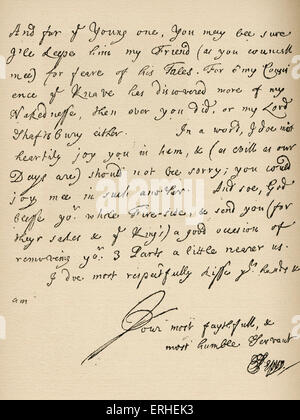 And for yͤ Young one, You may bee sure
I'le keepe him my Friend (as you councell
mee) for feare of his Tales. For o' my Consci
ence yͤ Knave has discovered more of my
Nakednesse, then ever you did, or my Lord
Shaftsbury either. In a word, I doe most
heartily joy you in hem, & (as evill as our
Days are) should not be sorry, you could
joy mee in such another. And soe, God
blesse yoʳ whole Fire-side, & send you (for
theyr sakes & yͤ King's) a good occasion of
remooveing yoʳ 3 Parts a little neerer us.
I doe most respectfully kisse yoʳ hands &
am
Your most faythfull, &
most humble Servant
alamy
Image ID: ERHEK3
www.alamy.com